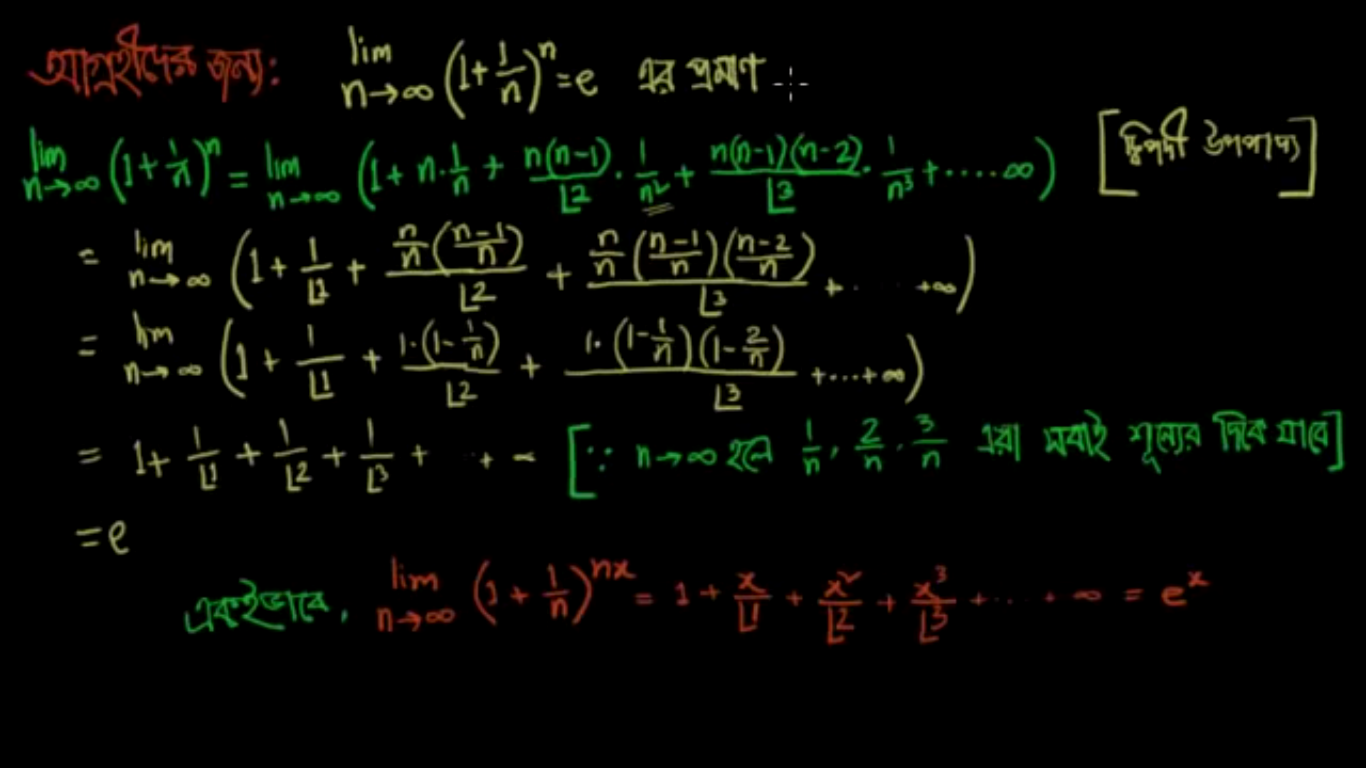 আগ্রহীদের জন্য: lim n→∞ (1+1/n)^n = e এর প্রমাণ
lim n→∞ (1+1/n)^n = lim n→∞ (1 + n·1/n + n(n-1)/⌊2 · 1/n² + n(n-1)(n-2)/⌊3 · 1/n³ + .... ∞) [দ্বিপদী উপপাদ্য]
= lim n→∞ (1 + 1/⌊1 + n/n((n-1)/n)/⌊2 + n/n((n-1)/n)((n-2)/n)/⌊3 + . .. +∞)
= lim n→∞ (1 + 1/⌊1 + 1·(1-1/n)/⌊2 + 1·(1-1/n)(1-2/n)/⌊3 +...+∞)
= 1 + 1/⌊1 + 1/⌊2 + 1/⌊3 + .. + ∞ [∵ n→∞ হলে 1/n, 2/n, 3/n এরা সবাই শূন্যের দিকে যাবে]
= e
একইভাবে, lim n→∞ (1+1/n)^nx = 1 + x/⌊1 + x²/⌊2 + x³/⌊3 + ... + ∞ = e^x